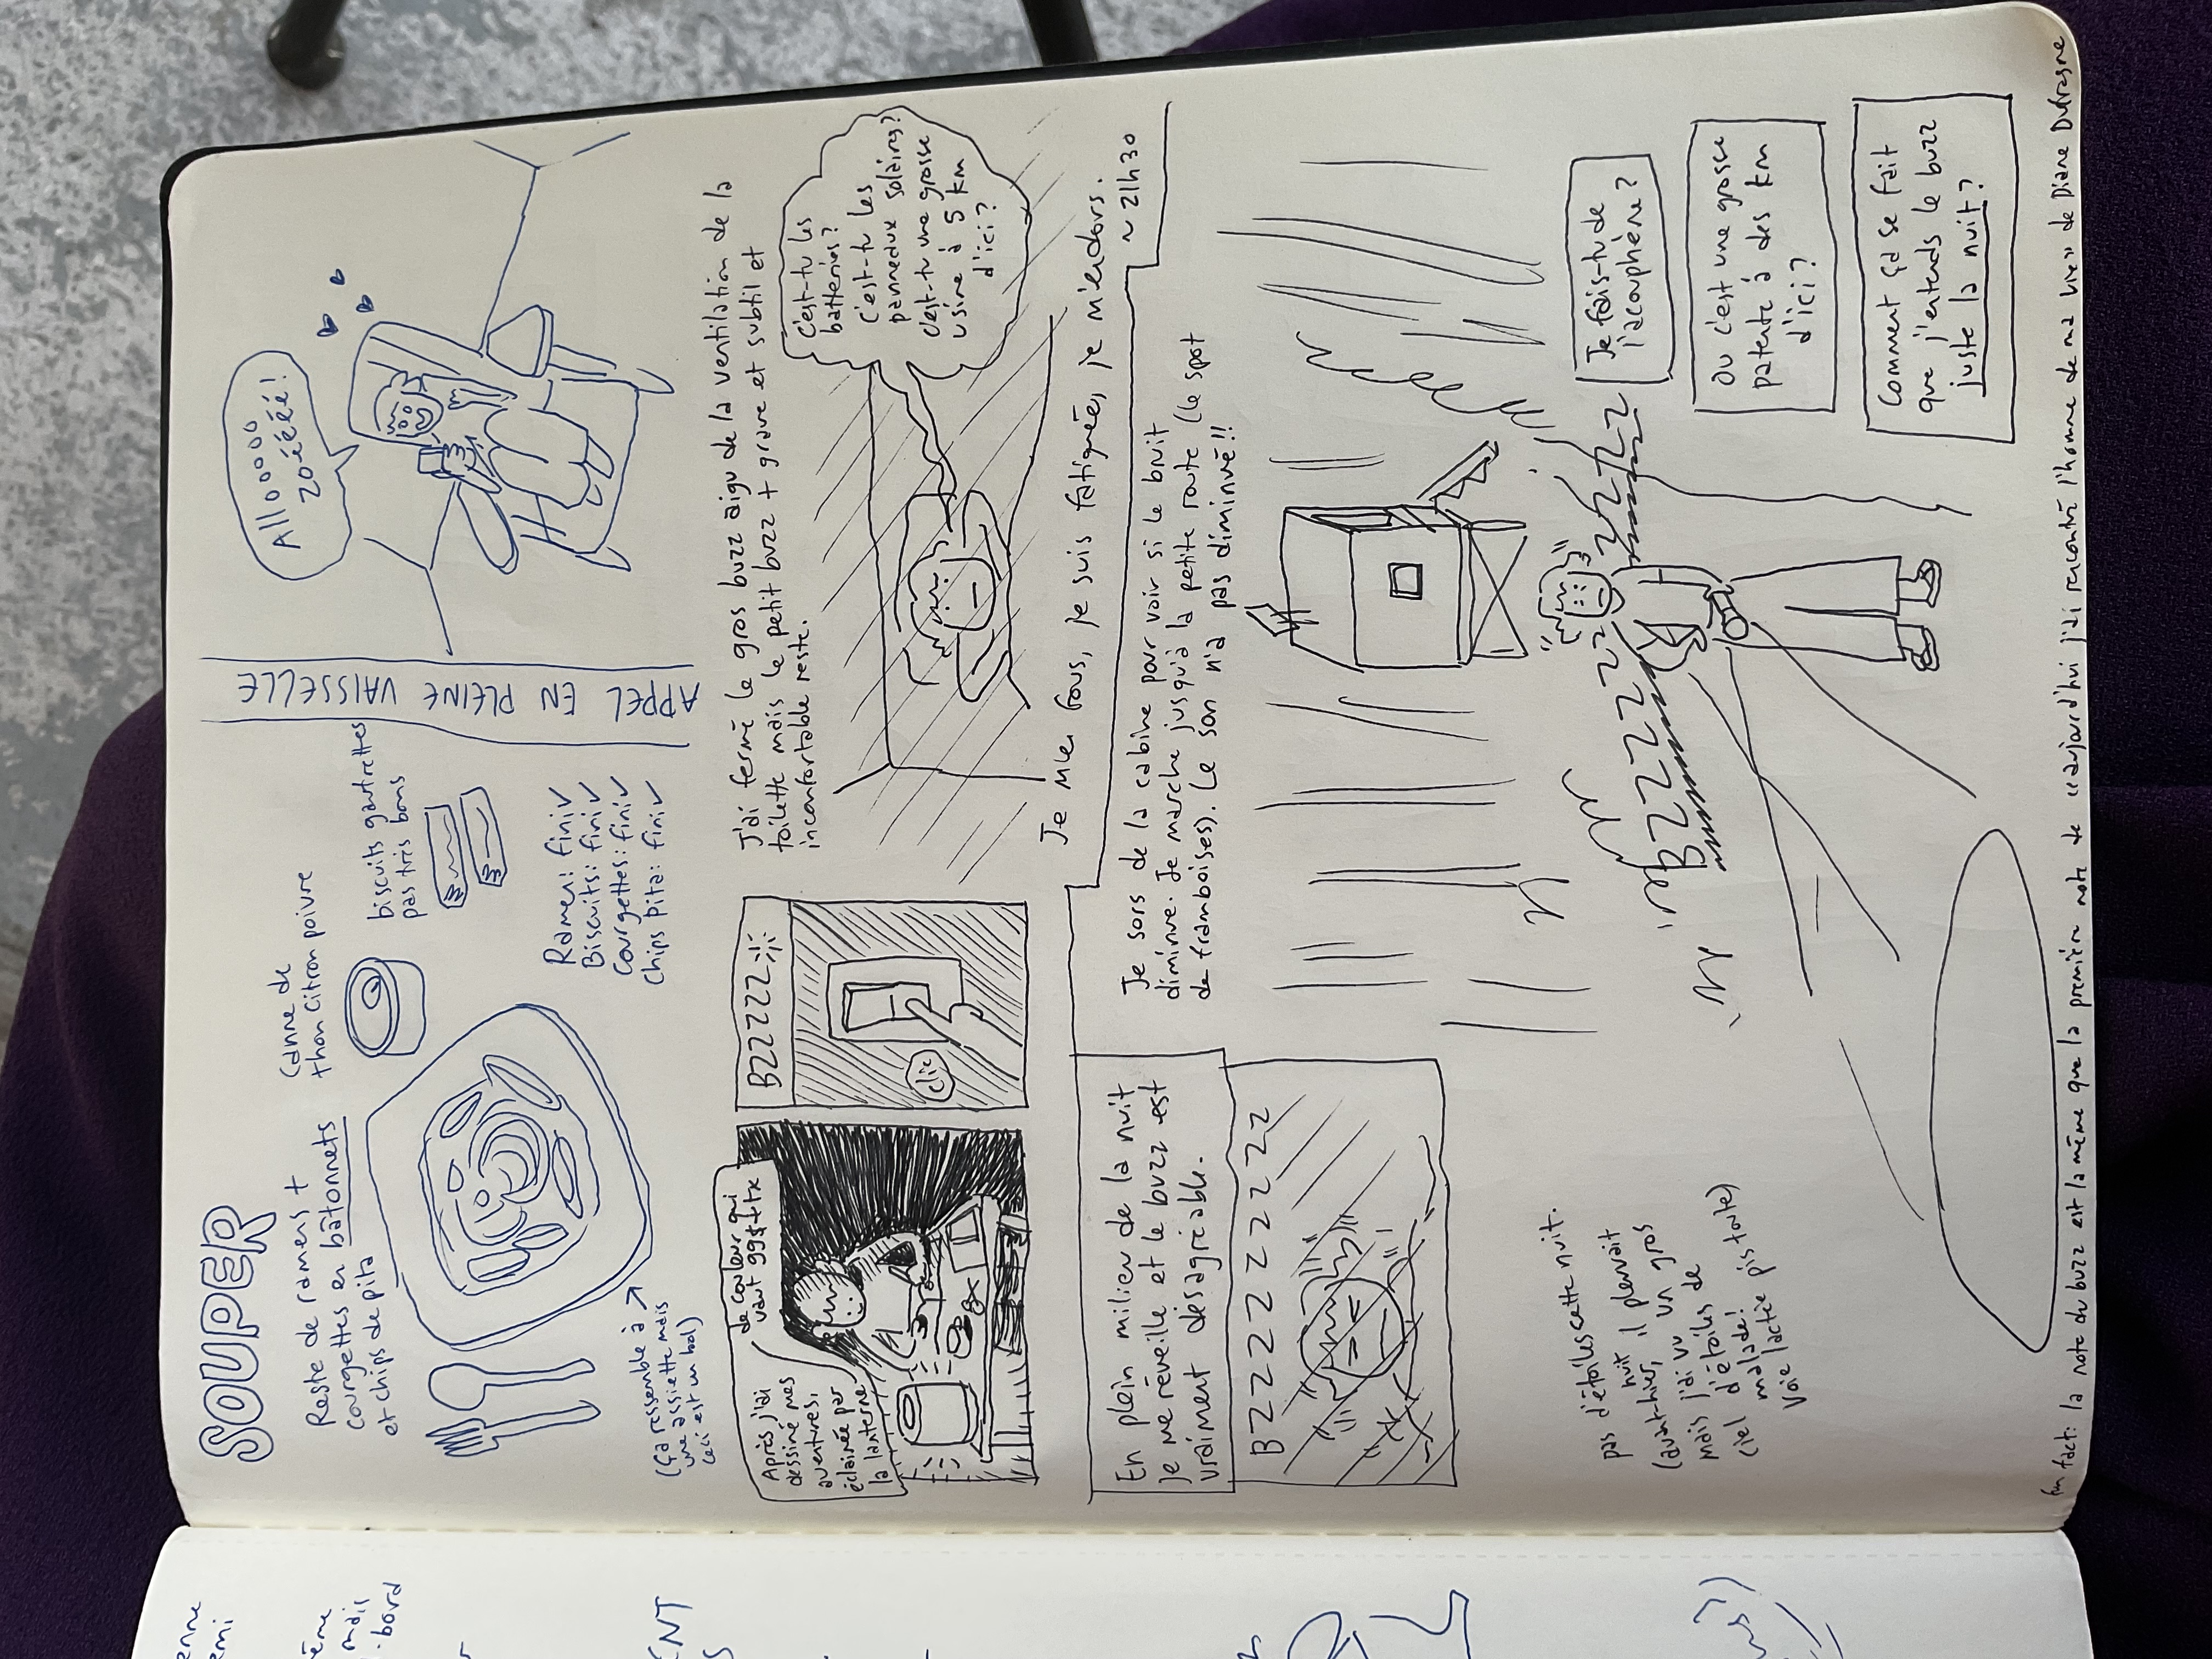 SOUPER
Reste de ramens +
courgettes en bâtonnets
et chips de pita
Canne de
thon citron poivre
biscuits gaufrettes
pas très bons
(ça ressemble à
une assiette mais
ceci est un bol)
Ramen: fini ✓
Biscuits: fini ✓
Courgettes: fini ✓
Chips pita: fini ✓
APPEL EN PLEINE VAISSELLE
Alloooo
zoéééé!
Après j'ai
dessiné mes
aventures,
éclairée par
la lanterne
de couleur qui
vaut 99$+tx
BZZZZZ
clic
J'ai fermé le gros buzz aigu de la ventilation de la
toilette mais le petit buzz + grave et subtil et
inconfortable reste.
c'est-tu les
batteries?
c'est-tu les
panneaux solaires?
c'est-tu une grosse
usine à 5 km
d'ici?
Je m'en fous, je suis fatiguée, je m'endors.
~ 21h30
En plein milieu de la nuit
je me réveille et le buzz est
vraiment désagréable.
BZZZZZZZZZZ
Je sors de la cabine pour voir si le bruit
diminue. Je marche jusqu'à la petite route (le spot
de framboises). Le son n'a pas diminué!!
BZZZZZZZ
ZZZZZ
Je fais-tu de
l'acouphène?
ou c'est une grosse
patente à des km
d'ici?
Comment ça se fait
que j'entends le buzz
juste la nuit?
pas d'étoiles cette nuit.
il pleuvait
(avant-hier,
mais j'ai vu un gros
ciel d'étoiles de
malade!
Voie lactée pis toute)
fun fact: la note du buzz est la même que la première note de «aujourd'hui j'ai rencontré l'homme de ma vie» de Diane Dufresne